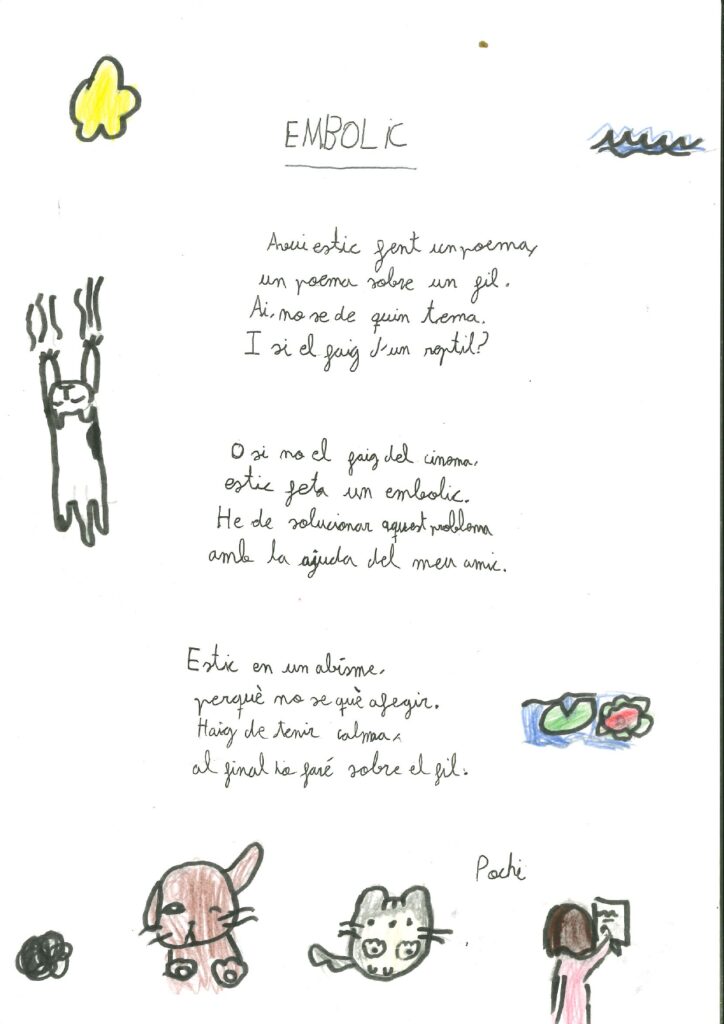 EMBOLIC
Aquí estic fent un poema,
un poema sobre un fil.
Ai, no se de quin tema.
I si el faig d'un reptil?
O si no el faig del cinema,
estic feta un embolic.
He de solucionar aquest problema
amb la ajuda del meu amic.
Estic en un abisme,
perquè no se què afegir.
Haig de tenir calma,
al final ho faré sobre el fil.
Pochi